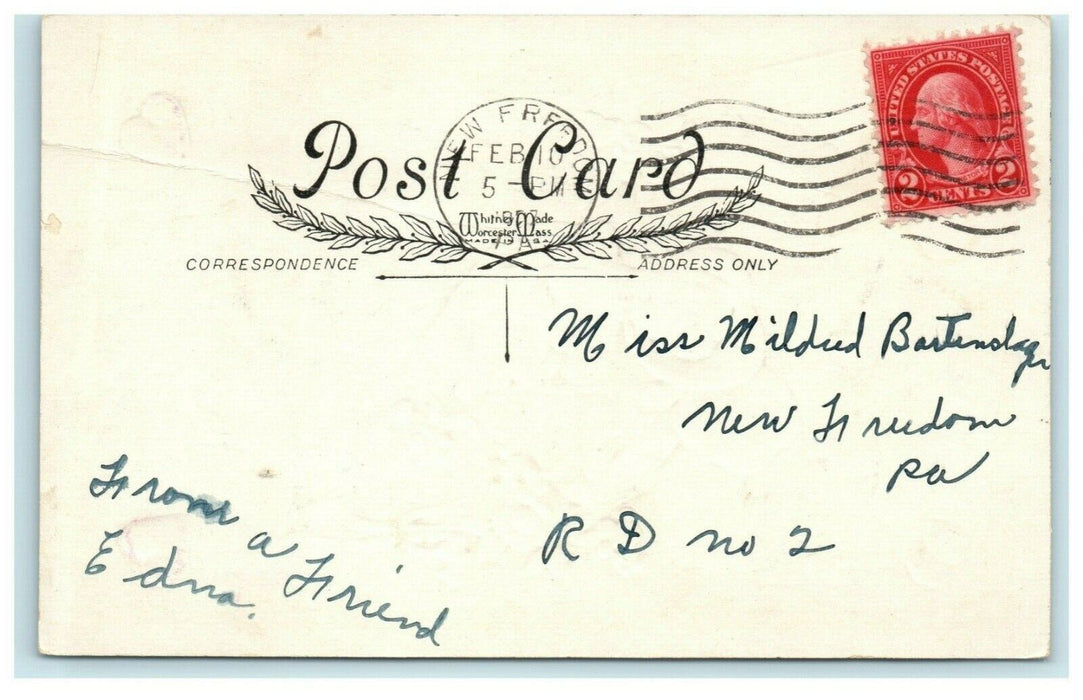 UNITED STATES POSTAGE
2 CENTS 2
NEW FREEDOM
FEB 10
5 - PM
PA
Post Card
Whitney Made
Worcester Mass.
MADE IN U.S.A.
CORRESPONDENCE
ADDRESS ONLY
Miss Mildred Bartenslager
New Freedom
Pa
R D no 2
From a Friend
Edna.